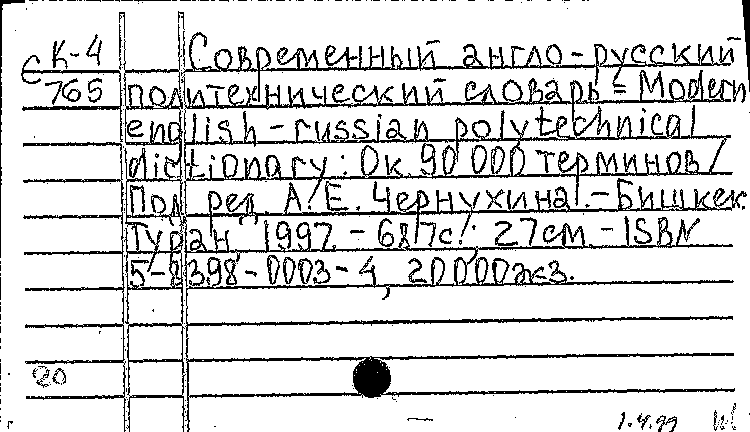 К-4 Современный англо-русский
С 765 политехнический словарь = Modern
english-russian polytechnical
dictionary: Ок. 90 000 терминов /
Под ред. А. Е. Чернухина. - Бишкек:
Туран, 1997. - 687с.; 27см. - ISBN
5-8398-0003-4, 20000экз.
20
1.4.99